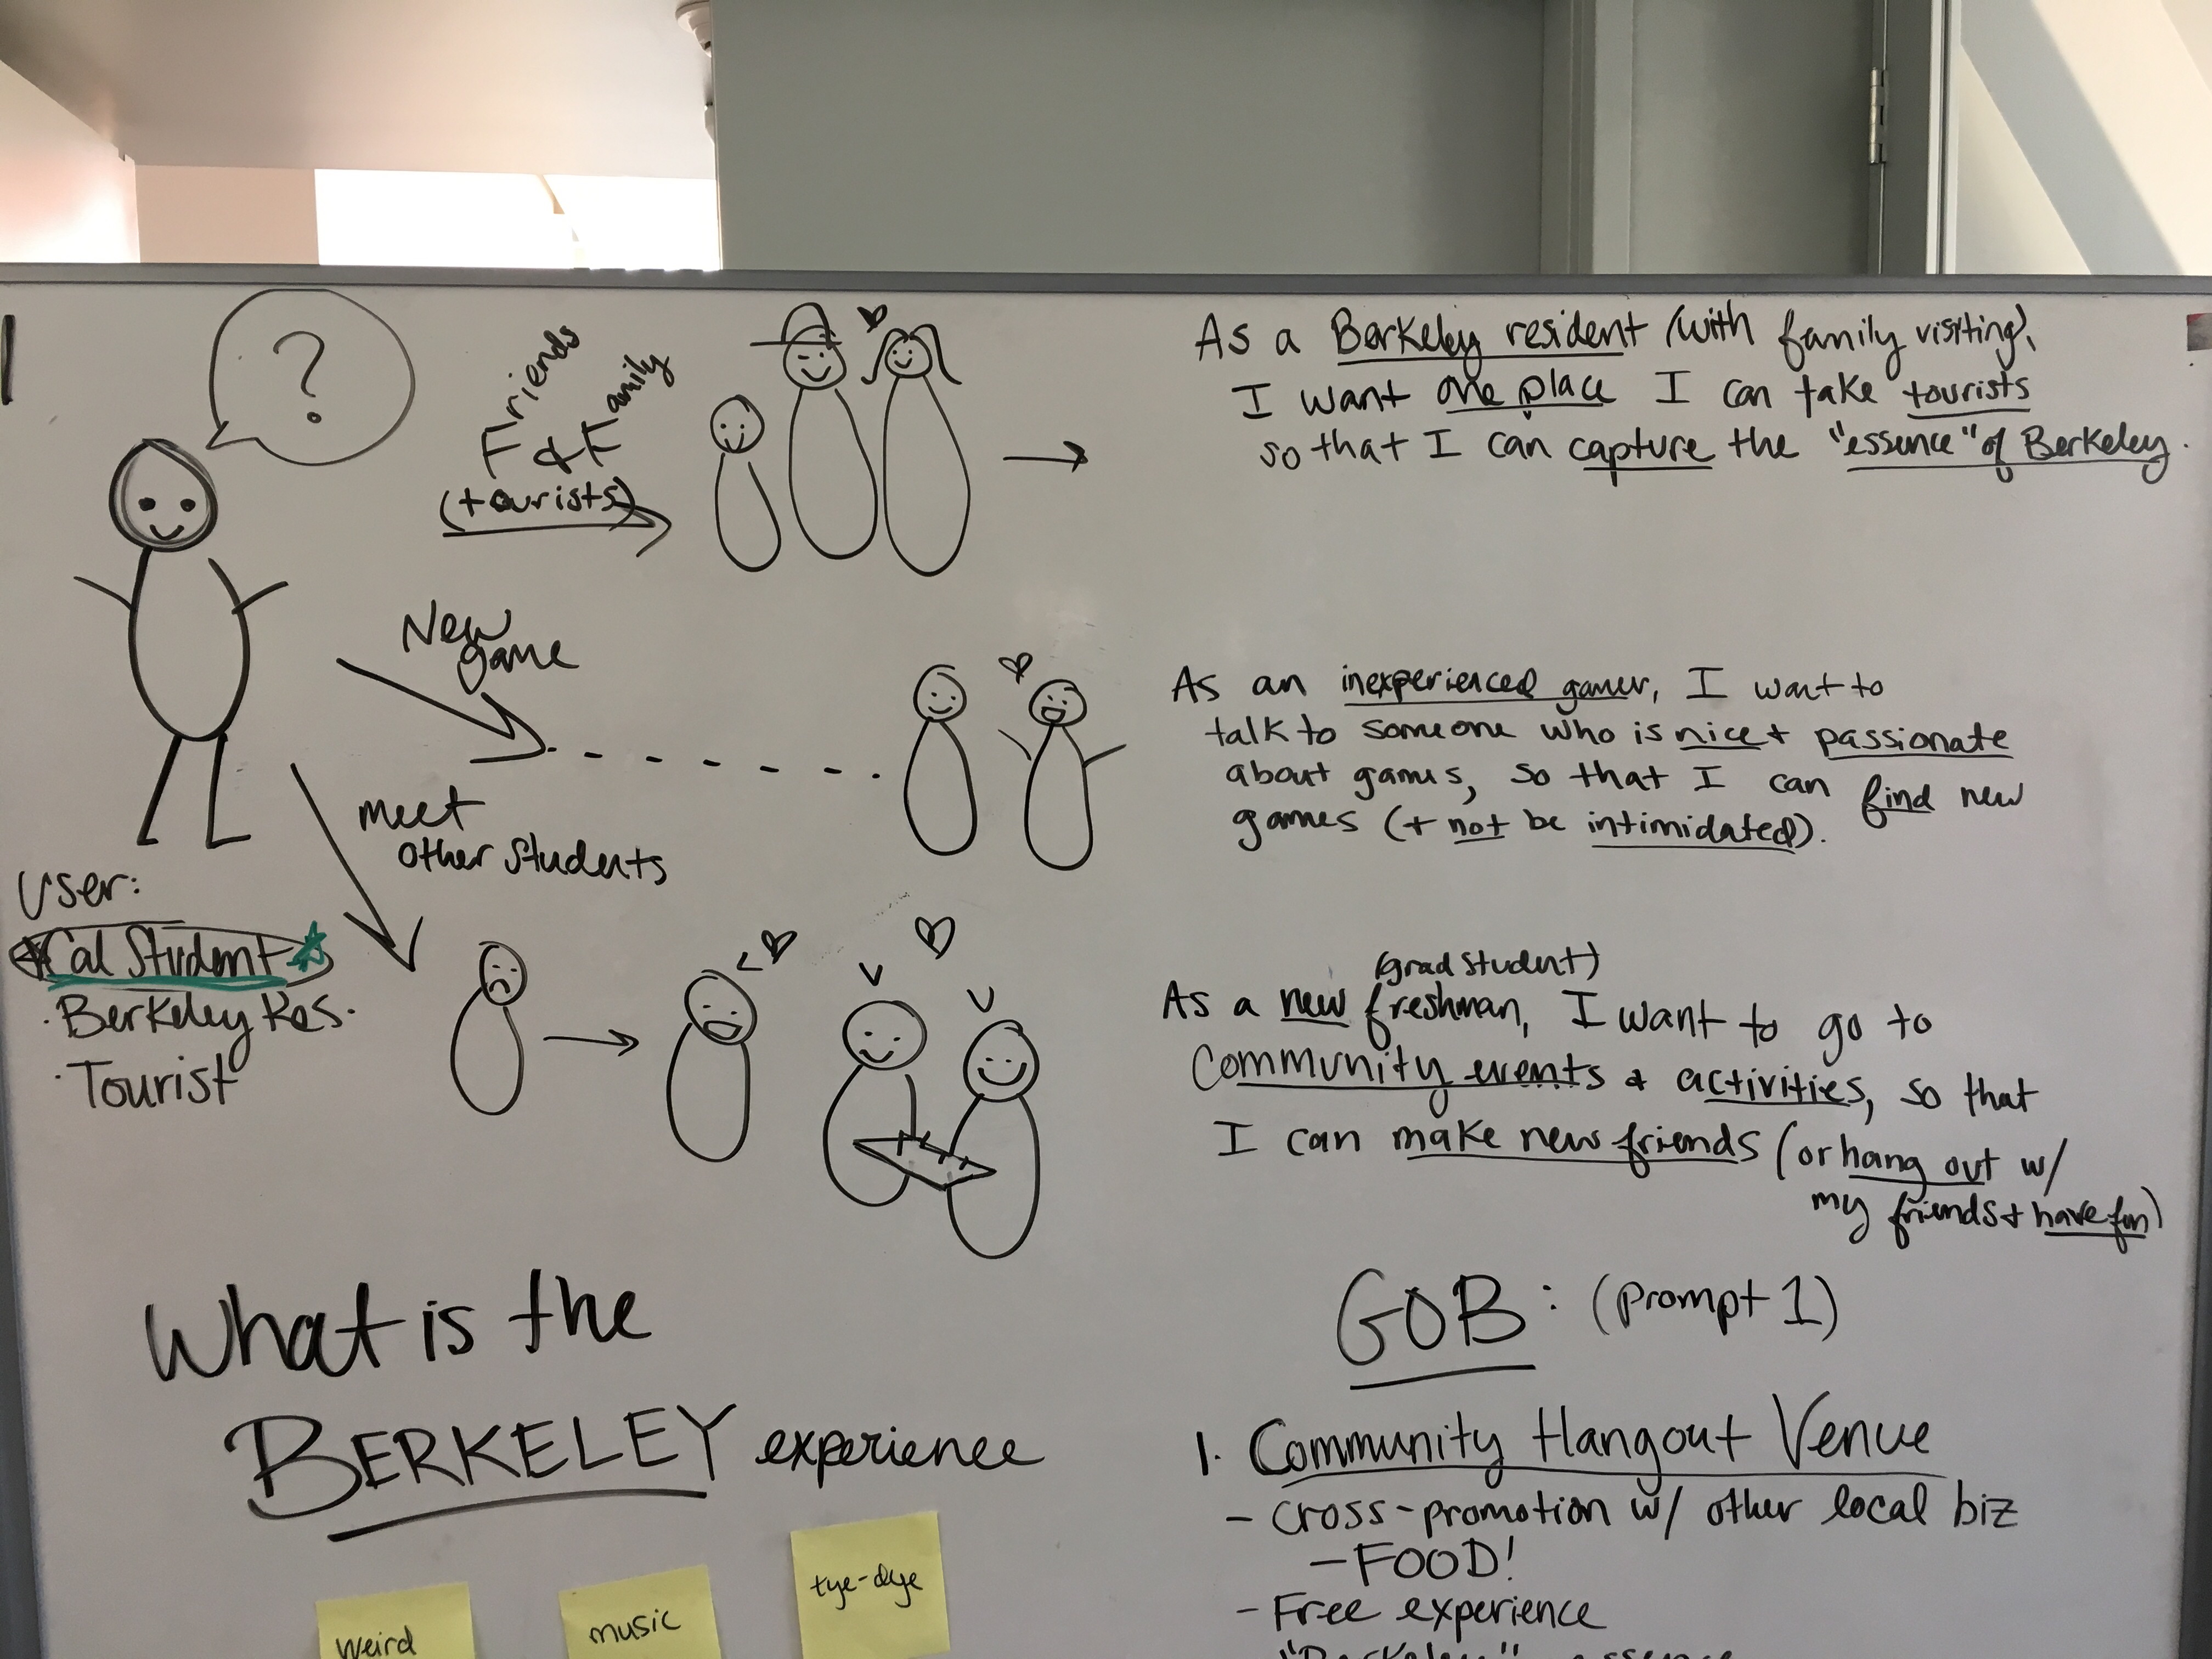 ?
Friends
& Family
(tourists)
As a Berkeley resident (with family visiting),
I want one place I can take tourists
so that I can capture the "essence" of Berkeley.
New
game
As an inexperienced gamer, I want to
talk to someone who is nice + passionate
about games, so that I can find new
games (+ not be intimidated).
meet
other students
User:
Cal Student
· Berkeley Res.
· Tourist
(grad student)
As a new freshman, I want to go to
Community events & activities, so that
I can make new friends (or hang out w/
my friends + have fun)
What is the
BERKELEY experience
weird
music
tye-dye
GOB: (Prompt 1)
1. Community Hangout Venue
- Cross-promotion w/ other local biz
- FOOD!
- Free experience